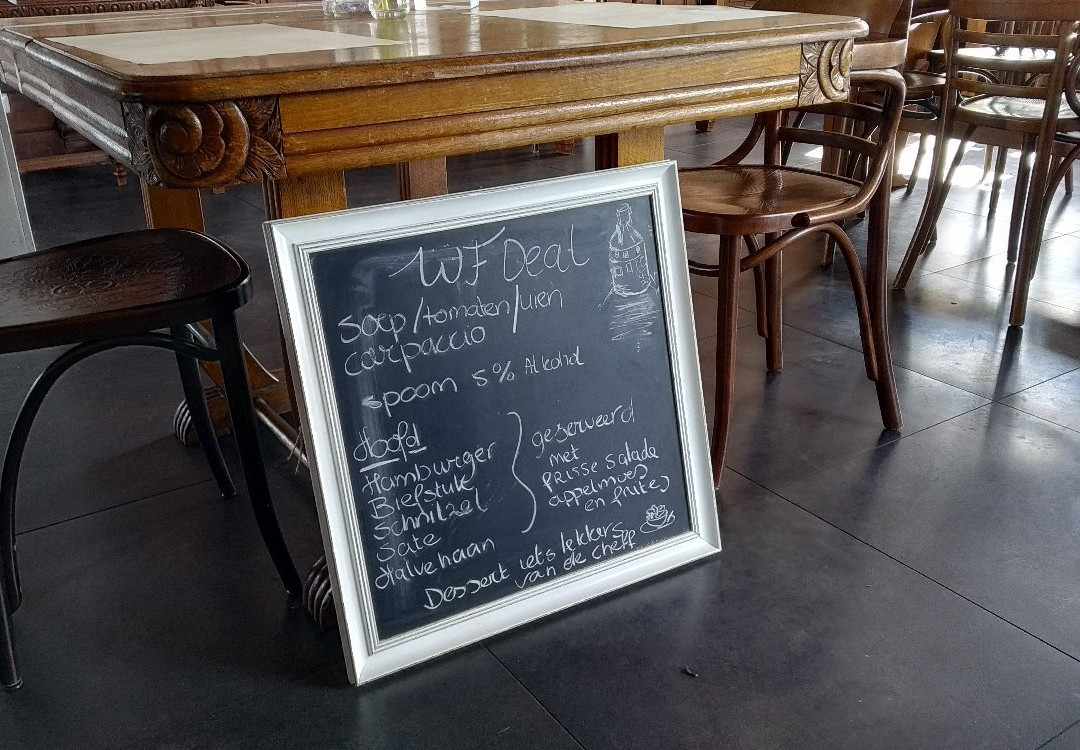 WF Deal
soep/tomaten/uien
carpaccio
spoom 5% Alkohol
Hoofd
Hamburger
Biefstuk
Schnitzel
Sate
Halve haan
geserveerd
met
frisse salade
appelmoes
en frites
Dessert iets lekkers
van de cheff